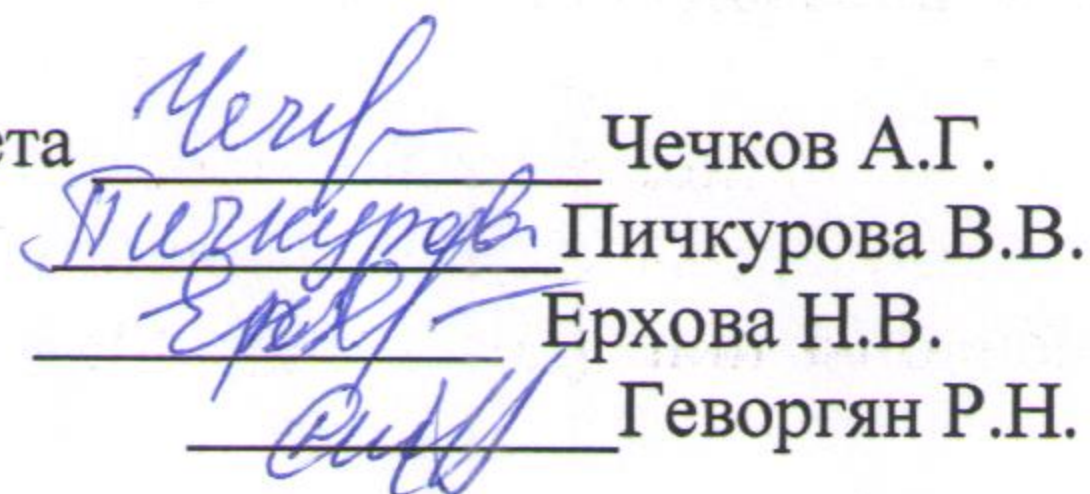 ета Чечков А.Г.
Пичкурова Пичкурова В.В.
Ерхова Н.В.
Геворгян Р.Н.